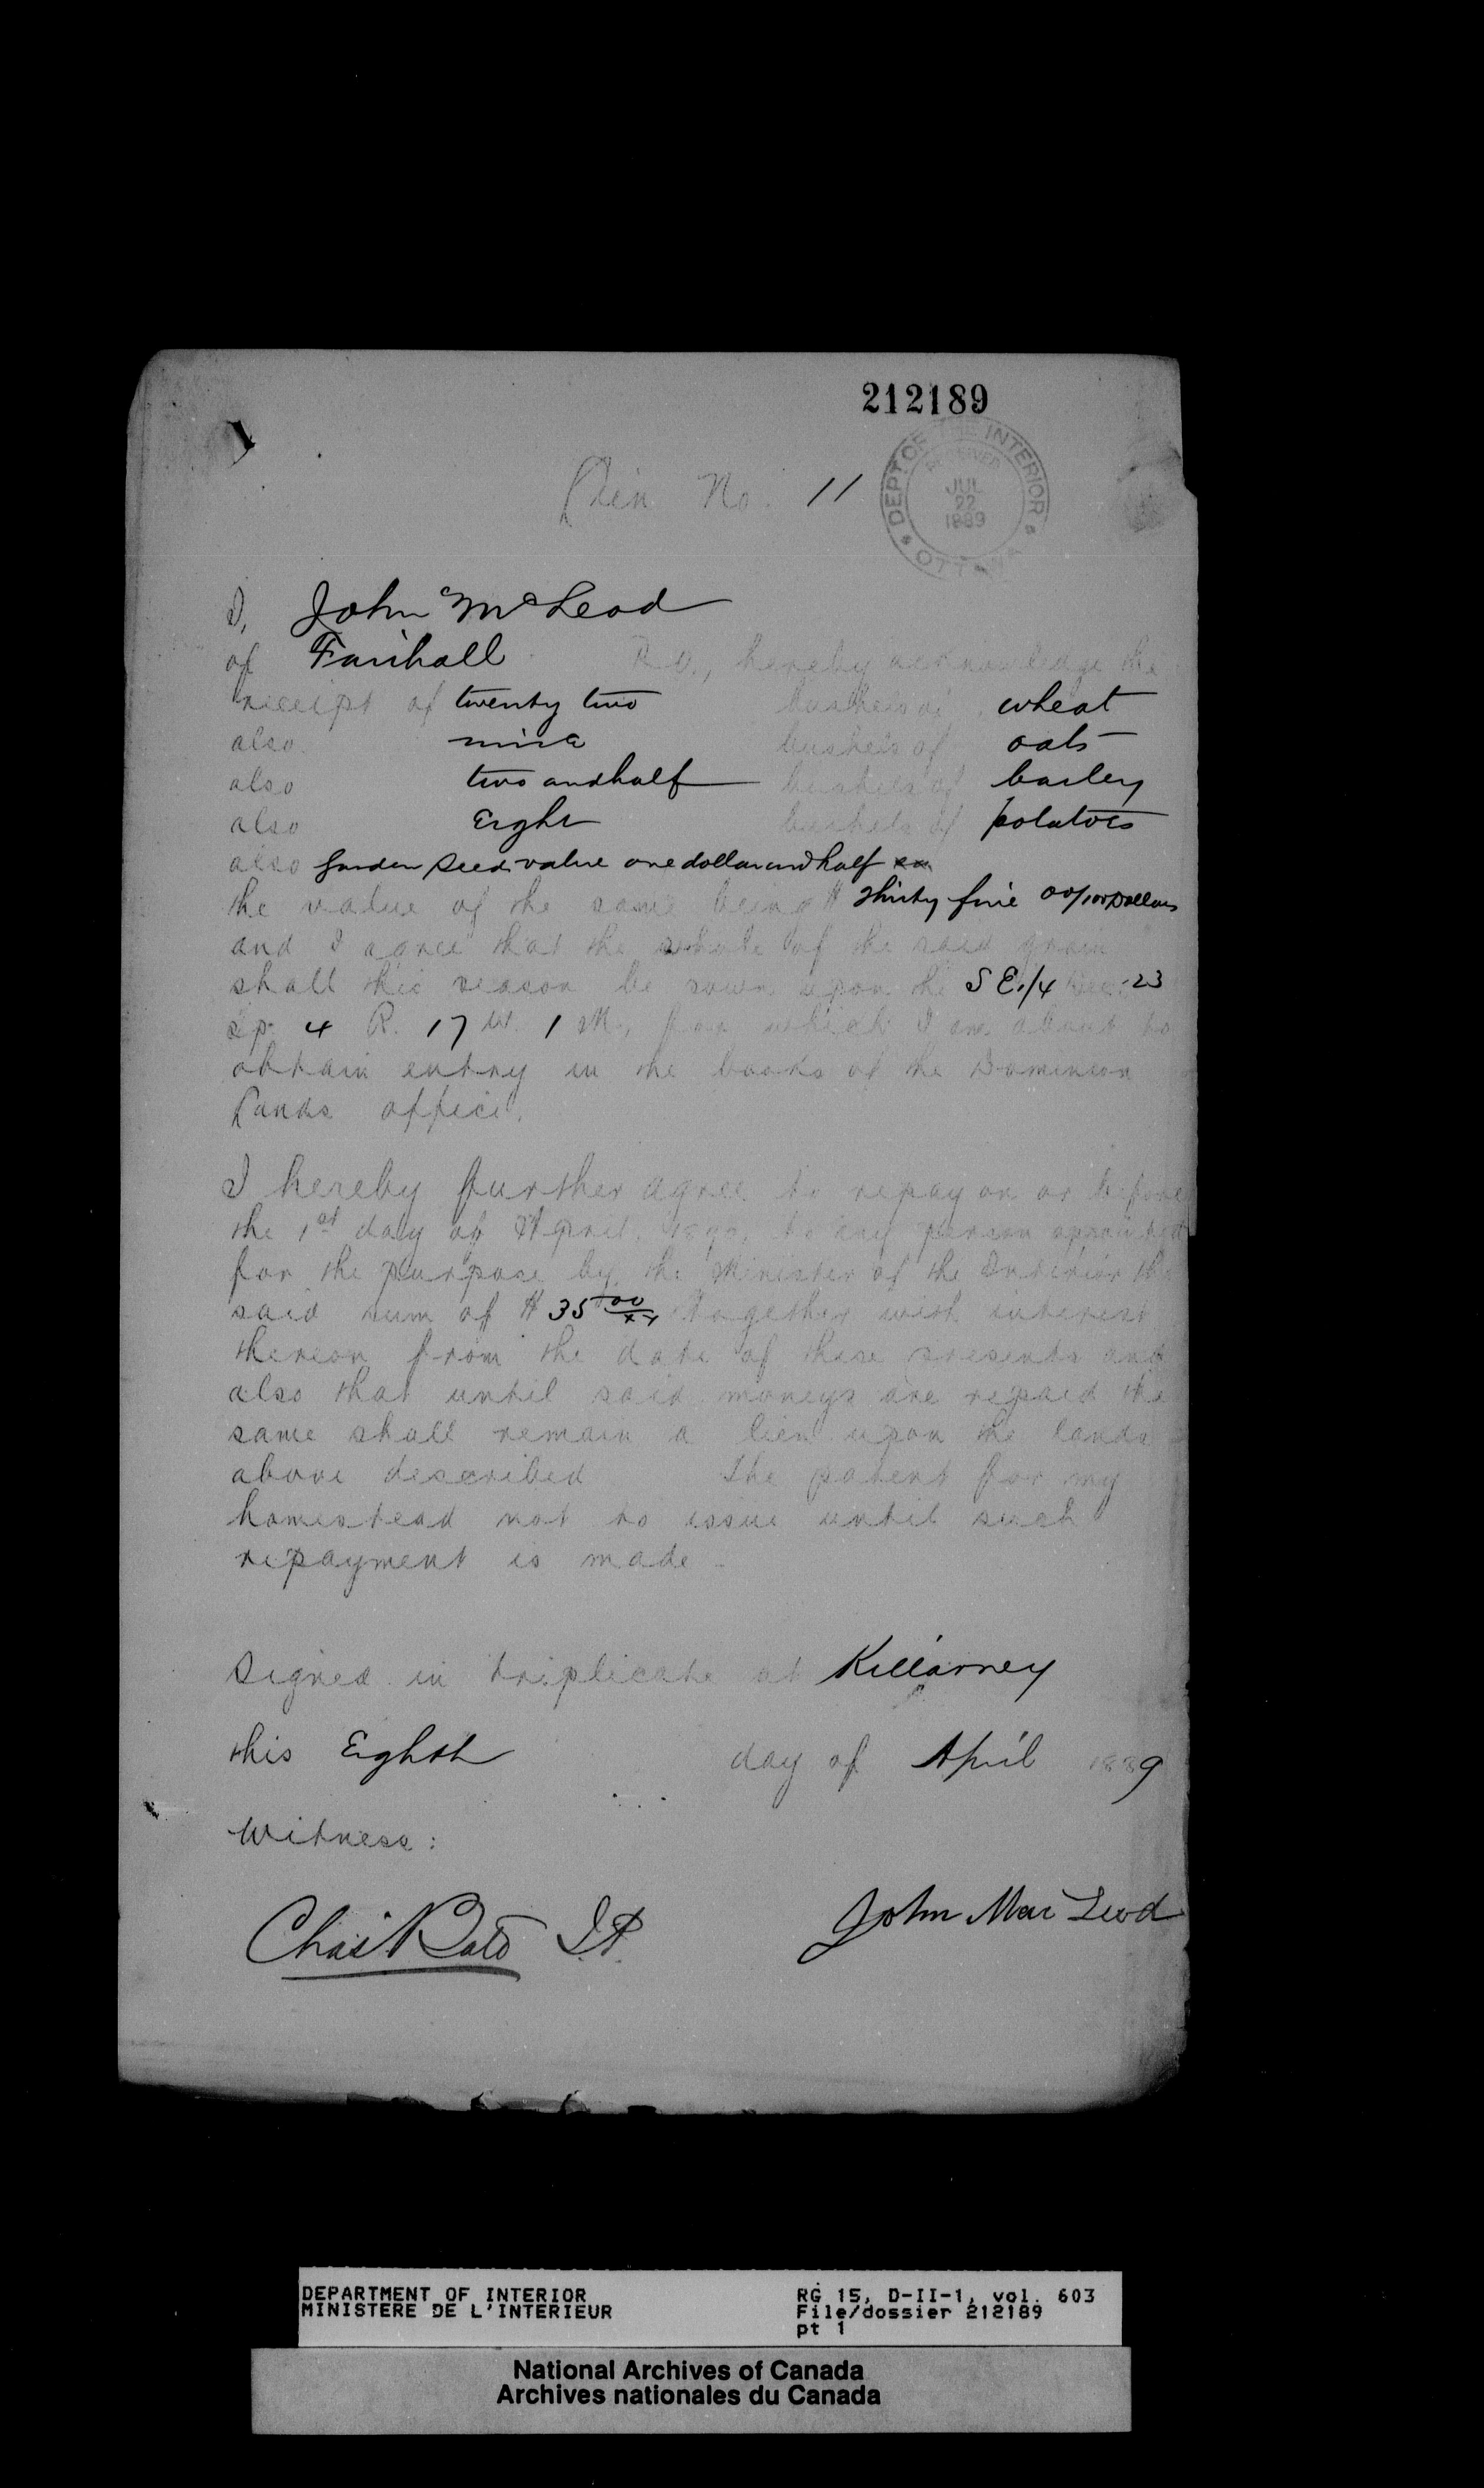 212189
DEPT OF THE INTERIOR
RECEIVED
JUL
22
1889
OTTAWA
Lien No. 11
I, John McLeod
of Fairhall P.O., hereby acknowledge the
receipt of twenty two bushels of wheat
also nine bushels of oats
also two and half bushels of barley
also Eight bushels of potatoes
also garden seed value one dollar and half
the value of the same being $ Thirty five 00/100 Dollars
and I agree that the whole of the said grain
shall this season be sown upon the S E 1/4 Sec. 23
Tp. 4 R. 17 W. 1 M., for which I am about to
obtain entry in the books of the Dominion
Lands office.
I hereby further agree to repay on or before
the 1st day of April, 1890, to any person appointed
for the purpose by the Minister of the Interior the
said sum of $ 35 00/xx together with interest
thereon from the date of these presents and
also that until said moneys are repaid the
same shall remain a lien upon the lands
above described The patent for my
homestead not to issue until such
repayment is made -
Signed in triplicate at Killarney
this Eighth day of April 1889
Witness:
Chas Bate J.P. John MacLeod
DEPARTMENT OF INTERIOR RG 15, D-II-1, vol. 603
MINISTERE DE L'INTERIEUR File/dossier 212189
pt 1
National Archives of Canada
Archives nationales du Canada